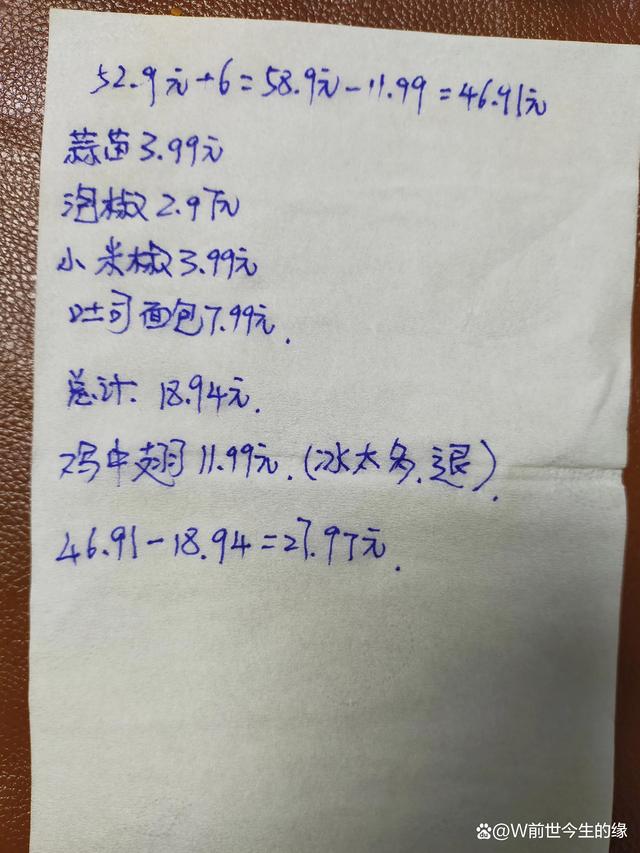 52.9元+6=58.9元-11.99=46.91元
蒜苗3.99元
泡椒2.97元
小米椒3.99元
吐司面包7.99元.
总计: 18.94元.
鸡中翅11.99元.(冰太多.退).
46.91-18.94=27.97元.
@W前世今生的缘